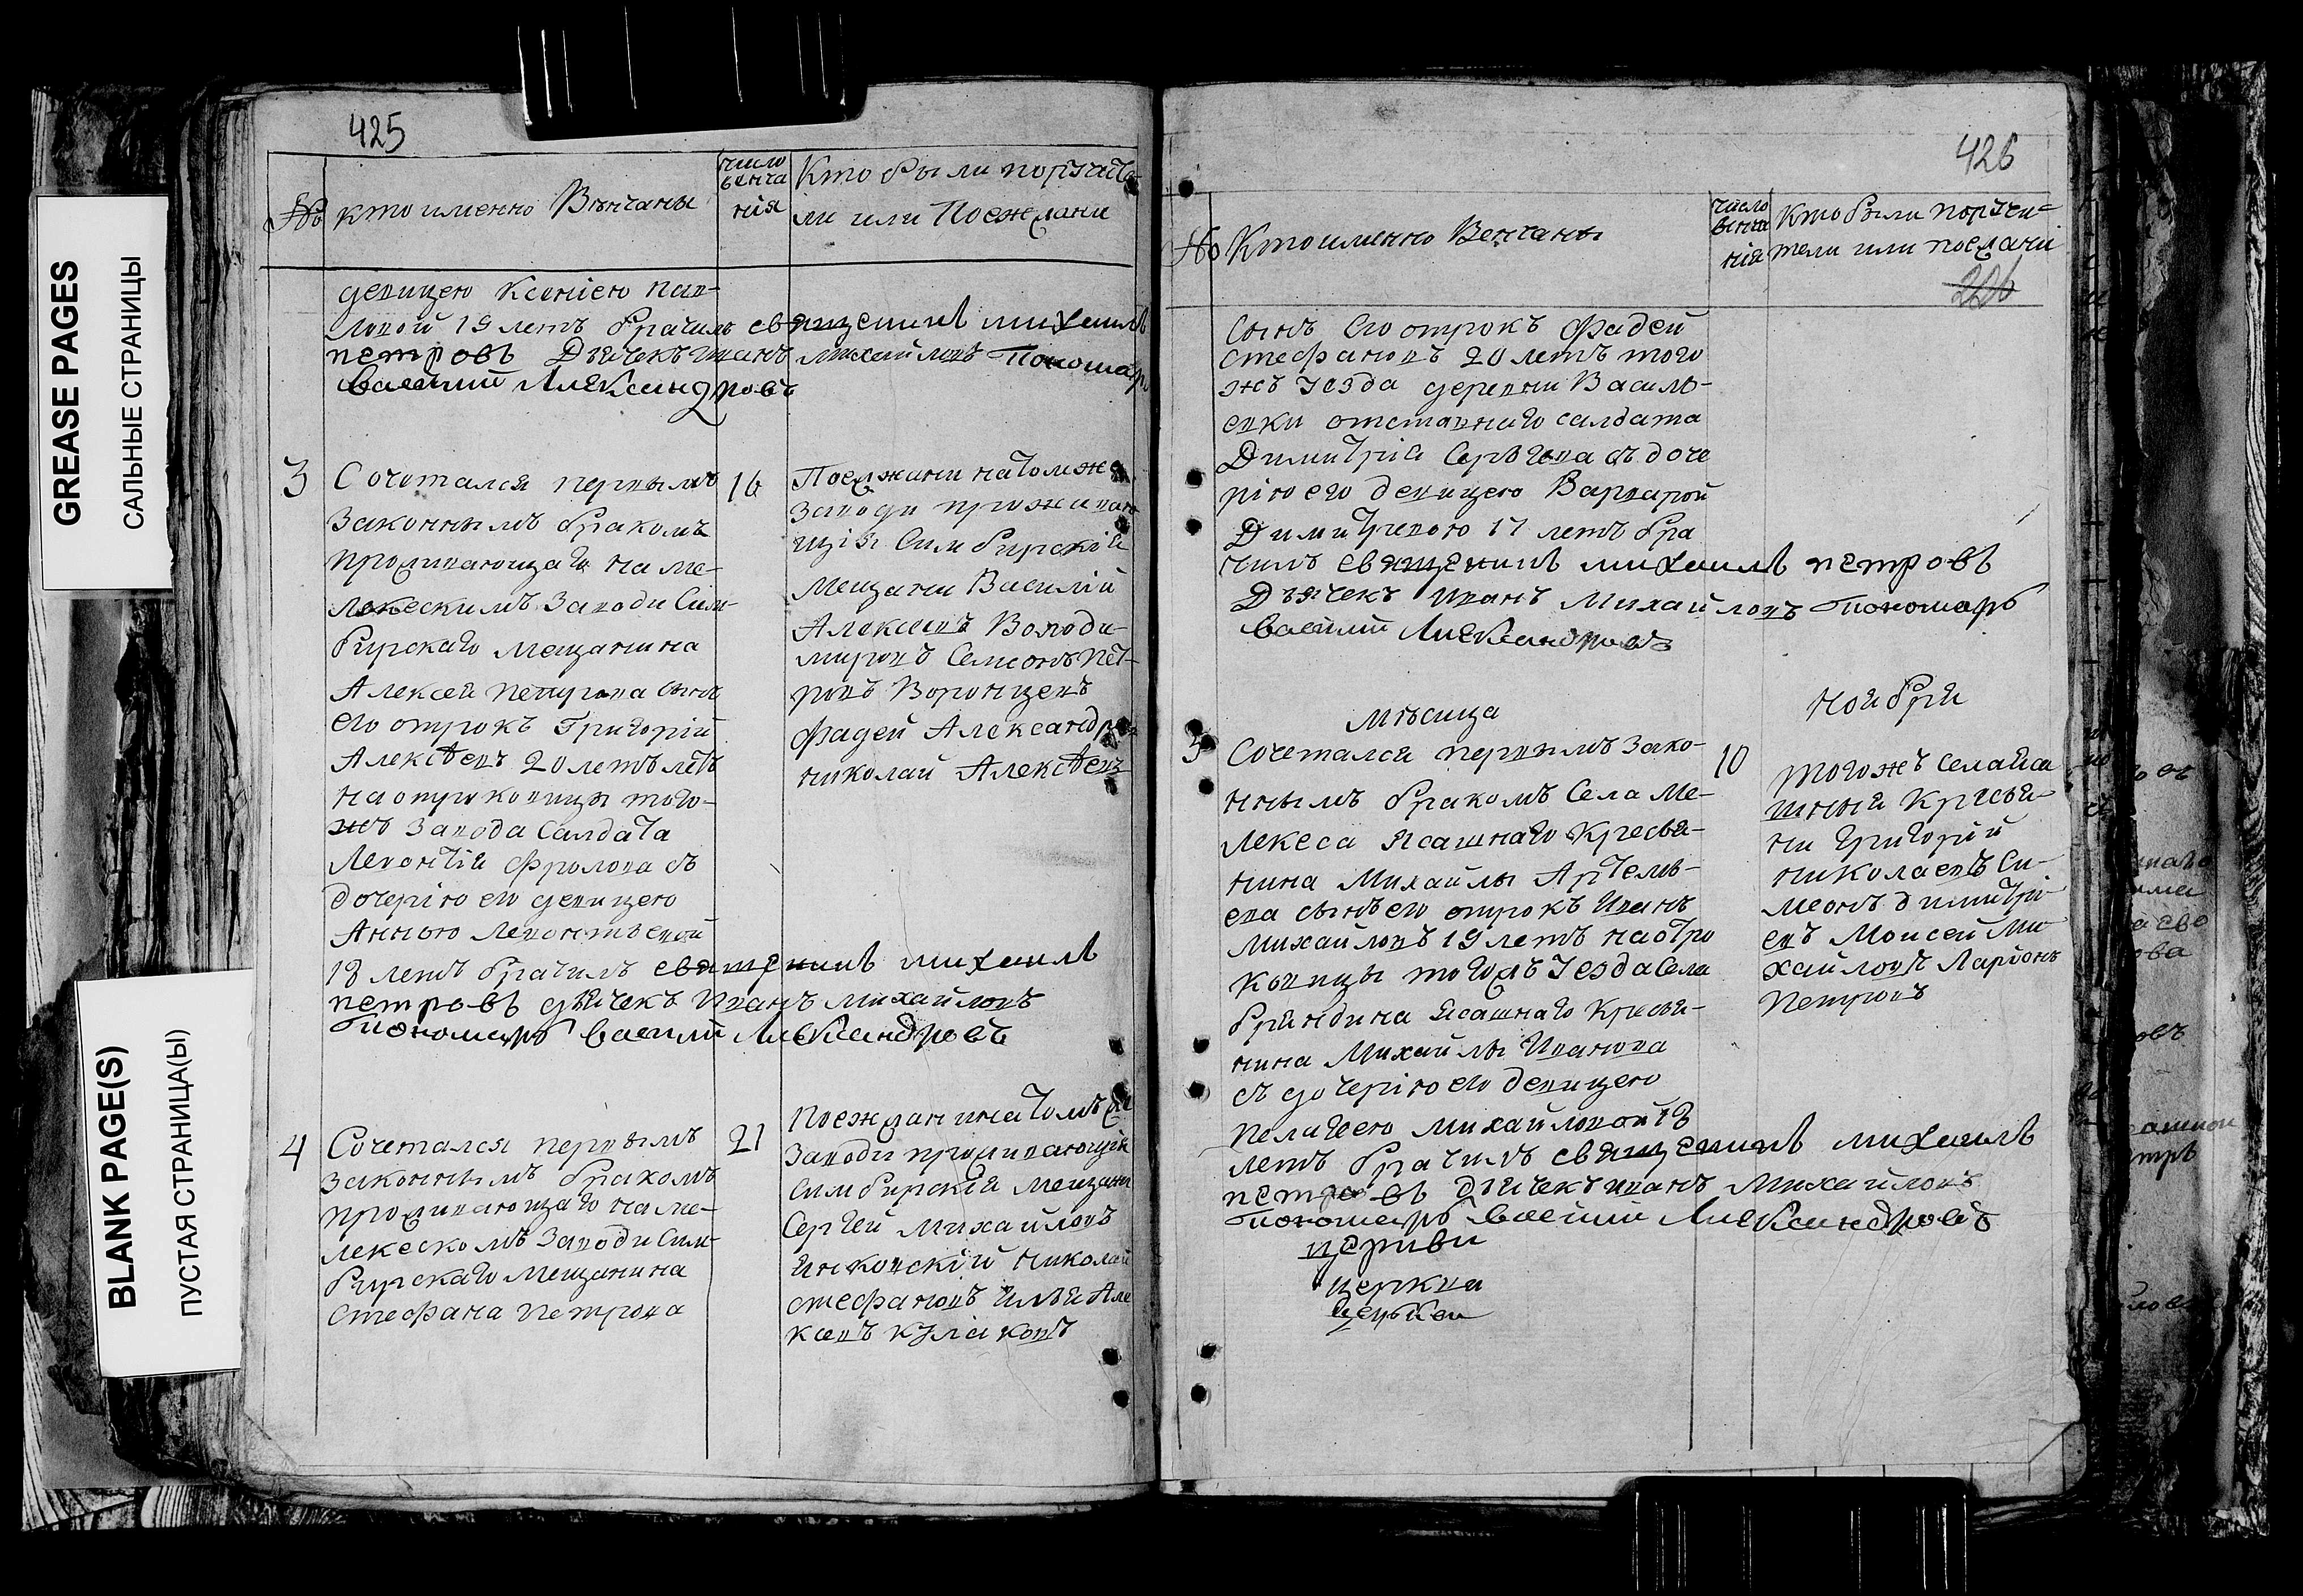 GREASE PAGES
САЛЬНЫЕ СТРАНИЦЫ
BLANK PAGE(S)
ПУСТАЯ СТРАНИЦА(Ы)
425
№
кто именно Вѣнчаны
число
венча
нія
Кто были поручите
ли или Поежжани
девицею Ксениею пав-
ловой 19 летъ брачилъ священникъ михаилъ
петровъ Дьячекъ иванъ михайловъ Пономарь
василии Александровъ
3
Сочетался первымъ
законнымъ бракомъ
проживающаго на ме-
лекескимъ заводи Сим-
бирскаго мещанина
Алексея петрова сынъ
его отрокъ Григорій
Алексѣевъ 20 летъ летъ
на отроковицы того-
жъ завода Салдата
Левонтія Фролова съ
дочерію его девицею
Анною Левонтьевой
18 летъ брачилъ священникъ михаилъ
петровъ дьячекъ Иванъ михайловъ
пономарь василии Александровъ
16
Поежжани на томже
заводи проживаю
щія Симбирскія
мещани Василій
Алексеевъ Володи-
мировъ Семионъ пет-
ровъ Воронцевъ
фадей Александров
николай Алексѣевъ
4
Сочетался первымъ
законнымъ бракомъ
проживающаго на ме-
лекескомъ заводи Сим-
бирскаго мещанина
Стефана петрова
21
поежжани на томъ же
заводи проживающія
Симбирскія мещани
Сергей михайловъ
Инковскій николай
стефановъ Илья Але
ксевъ кулаковъ
426
№
Кто именно Венчаны
число
венча
нія
Кто были поручи-
тели или поежжани
226
Сынъ Его отрокъ фадей
стефановъ 20 летъ того
жъ уезда деревни Василь-
евки отставнаго салдата
Димитрія Сергѣева съ доче
рію его девицею Варварой
Димитревою 17 летъ бра
чилъ священникъ михаилъ петровъ
Дьячекъ иванъ Михайловъ пономарь
василии Александровъ
мѣсяца
ноября
5
Сочетался первымъ зако-
ннымъ бракомъ Села Ме-
лекеса Ясашнаго кресья-
нина Михайлы Артемь-
ева сынъ его отрокъ Иванъ
михайловъ 19 летъ на отро
ковицы того жъ уезда Села
бряндина Ясашнаго кресья-
нина Михайлы Иванова
съ дочерію его девицею
пелагеею михайловой 18
летъ брачилъ священникъ михаилъ
петровъ дьячекъ иванъ Михайловъ
пономарь василии Александровъ
церкви
церкви
церкви
10
того жъ села яса
шныя кресья-
ни григорій
николаевъ Си-
меонъ димитрі
евъ Моисей ми-
хайловъ Ларіонъ
петровъ